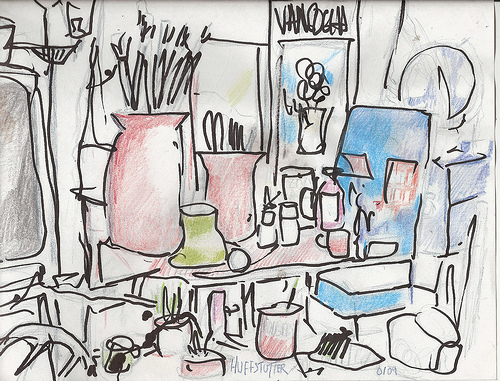 VANGOGH
HUFFSTUTTER
6/09